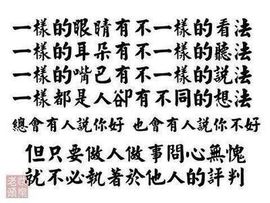 一樣的眼睛有不一樣的看法
一樣的耳朵有不一樣的聽法
一樣的嘴巴有不一樣的說法
一樣都是人卻有不同的想法
總會有人說你好 也會有人說你不好
但只要做人做事問心無愧
就不必執著於他人的評判